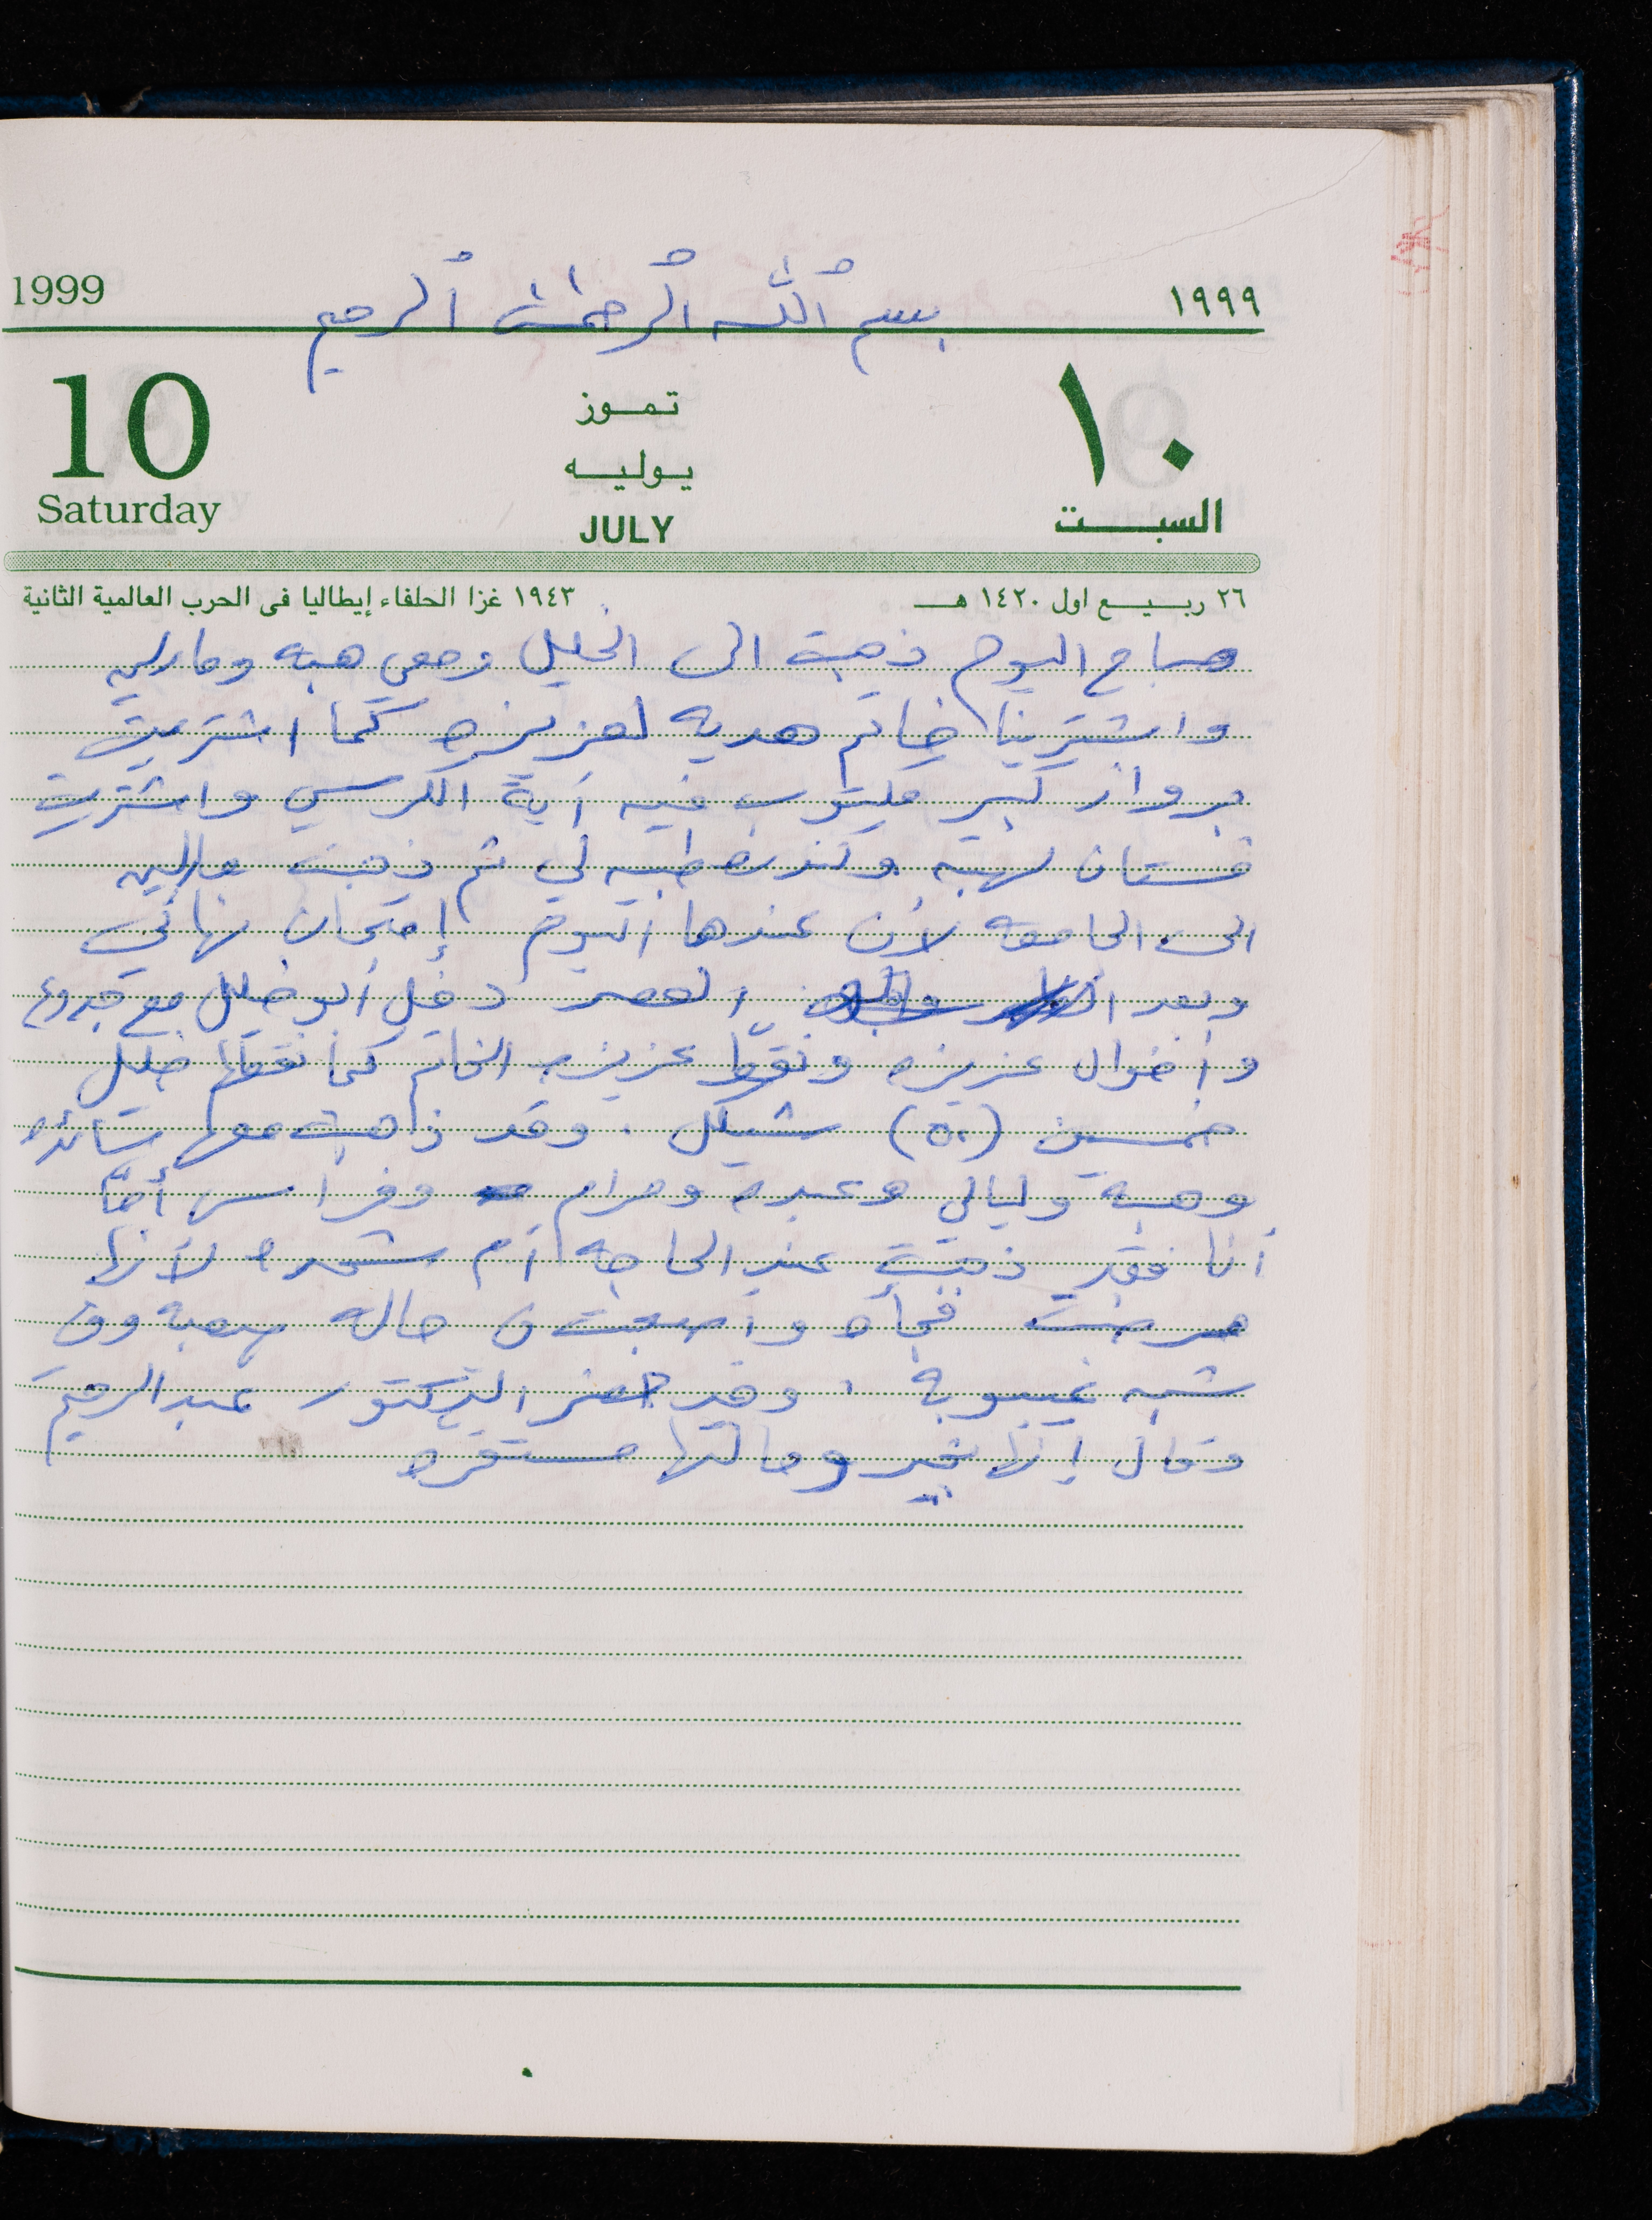 بسم ٱللّٰه ٱلرحمٰن ٱلرحيم
1999 ١٩٩٩
10 تموز ١٠
يوليه
Saturday JULY السبت
٢٦ ربيع اول ١٤٢٠ هـ ١٩٤٣ غزا الحلفاء إيطاليا فى الحرب العالمية الثانية
صباح اليوم ذهبت الى الخليل ومعي هبه ومارلين
واشترينا خاتم هديه لعزيزه كما اشتريت
برواز كبير مكتوب فيه آية الكرسي واشتريت
فستان لهبه وكندره طبيه لي ثم ذهبت مارلين
الى الجامعه لأن عندها اليوم إمتحان نهائي
وبعد العصر دخل أبو خليل مع
وأخوال عزيزه ونقطّوا عزيزه الخاتم كما نقطها خليل
خمسين (٥٠) شيكل . وقد ذهبت معها
وهبة وليالي وعبده ومرام وفراس أمّا
أنا فقد ذهبت عند الحاجه أم شحده لأنها
مرضت فجأه وأصبحت في حاله صعبه وفي
شبه غيبوبة . وقد حضر الدكتور عبد الرحيم
وقال إنها بخير وحالتها مستقره